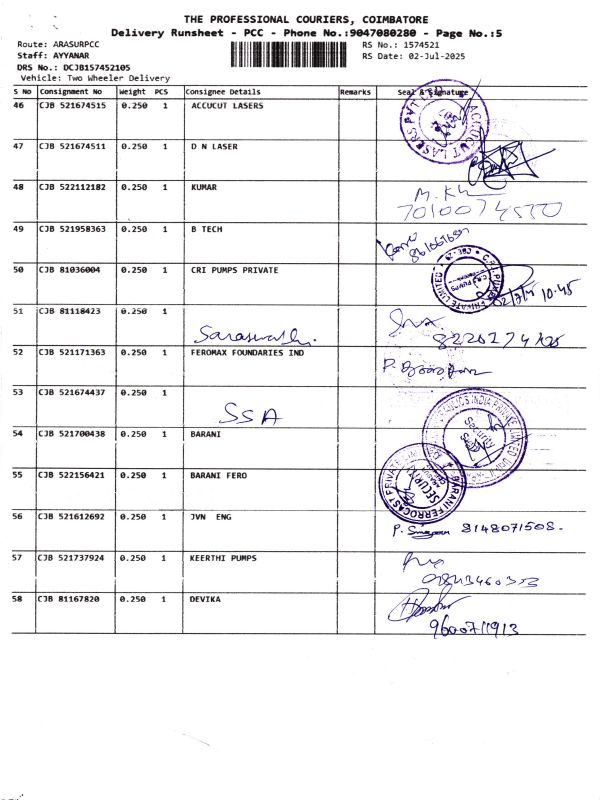 THE PROFESSIONAL COURIERS, COIMBATORE
Delivery Runsheet - PCC - Phone No.:9047080280 - Page No.:5
Route: ARASURPCC
RS No.: 1574521
Staff: AYYANAR
RS Date: 02-Jul-2025
DRS No.: DCJB157452105
Vehicle: Two Wheeler Delivery
S No Consignment No Weight PCS Consignee Details Remarks Seal & Signature
46 CJB 521674515 0.250 1 ACCUCUT LASERS
ACCUCUT LASERS PVT LTD
47 CJB 521674511 0.250 1 D N LASER
48 CJB 522112182 0.250 1 KUMAR
49 CJB 521958363 0.250 1 B TECH
50 CJB 81036004 0.250 1 CRI PUMPS PRIVATE
10.45
51 CJB 81118423 0.250 1
Saraswathi.
52 CJB 521171363 0.250 1 FEROMAX FOUNDARIES IND
53 CJB 521674437 0.250 1
SSA
54 CJB 521700438 0.250 1 BARANI
55 CJB 522156421 0.250 1 BARANI FERO
BARANI FERROCAST PRIVATE
SECURITY
56 CJB 521612692 0.250 1 JVN ENG
8148071508-
57 CJB 521737924 0.250 1 KEERTHI PUMPS
58 CJB 81167820 0.250 1 DEVIKA
9600711913